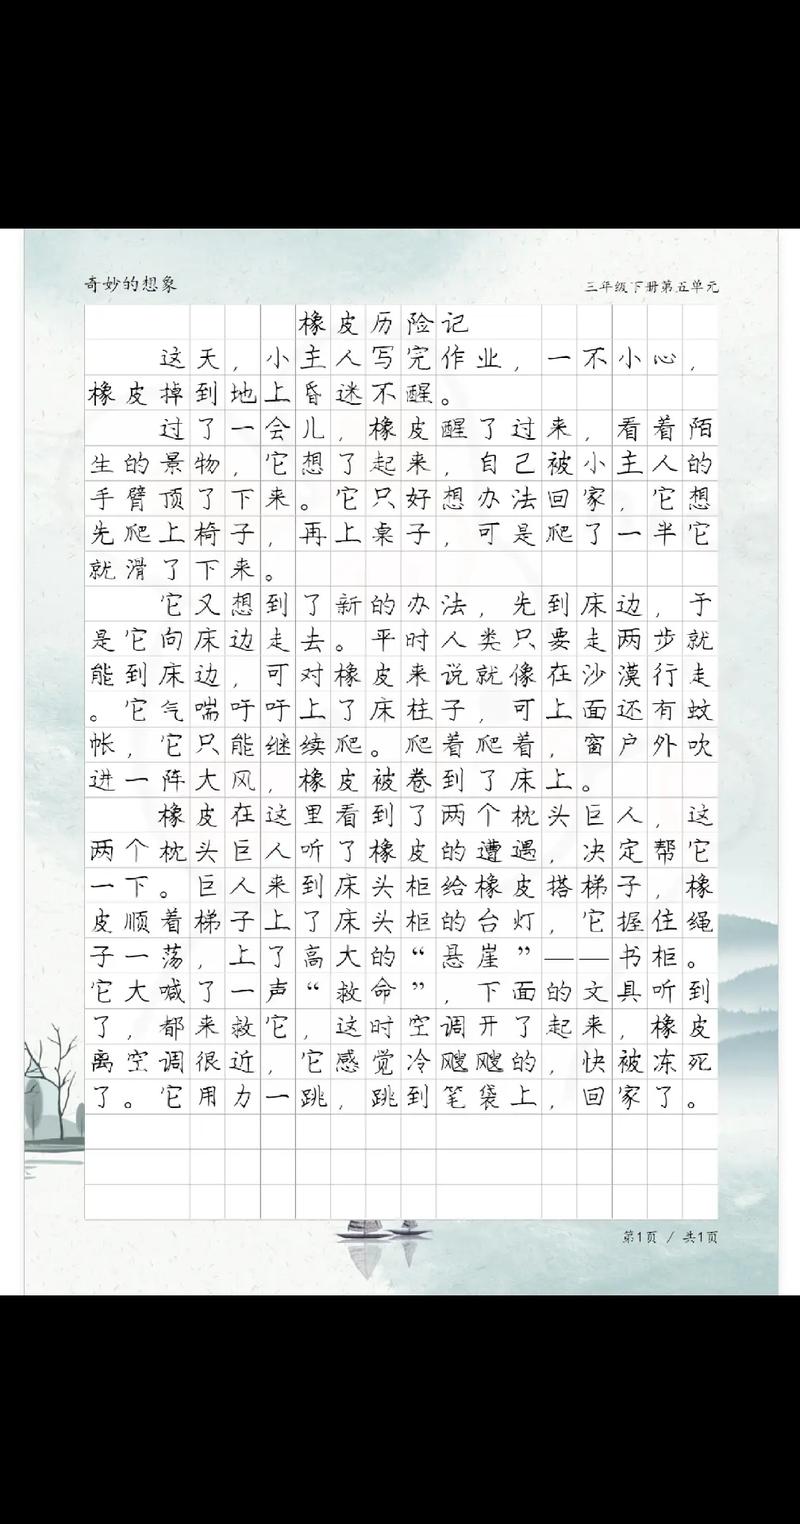 奇妙的想象
三年级下册第五单元
橡皮历险记
这天，小主人写完作业，一不小心，
橡皮掉到地上昏迷不醒。
过了一会儿，橡皮醒了过来，看着陌
生的景物，它想了起来，自己被小主人的
手臂顶了下来。它只好想办法回家，它想
先爬上椅子，再上桌子，可是爬了一半它
就滑了下来。
它又想到了新的办法，先到床边，于
是它向床边走去。平时人类只要走两步就
能到床边，可对橡皮来说就像在沙漠行走
。它气喘吁吁上了床柱子，可上面还有蚊
帐，它只能继续爬。爬着爬着，窗户外吹
进一阵大风，橡皮被卷到了床上。
橡皮在这里看到了两个枕头巨人，这
两个枕头巨人听了橡皮的遭遇，决定帮它
一下。巨人来到床头柜给橡皮搭梯子，橡
皮顺着梯子上了床头柜的台灯，它握住绳
子一荡，上了高大的“悬崖”——书柜。
它大喊了一声“救命”，下面的文具听到
了，都来救它，这时空调开了起来，橡皮
离空调很近，它感觉冷飕飕的，快被冻死
了。它用力一跳，跳到笔袋上，回家了。
第1页 / 共1页